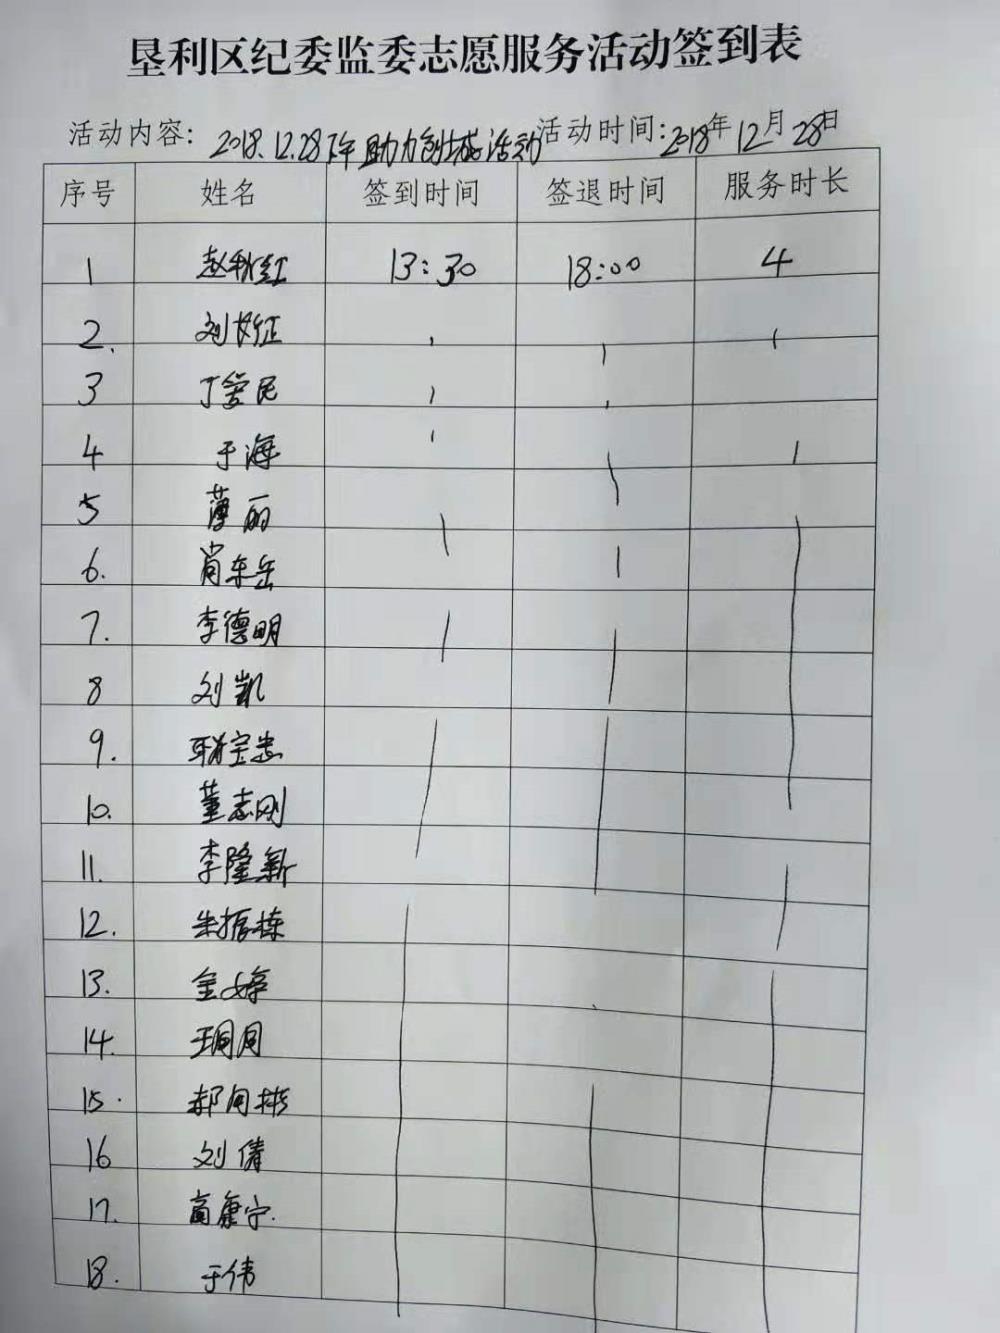 垦利区纪委监委志愿服务活动签到表
活动内容: 2018.12.28下午助力创城活动 活动时间:2018年12月28日
序号 姓名 签到时间 签退时间 服务时长
1 赵秋红 13:30 18:00 4
2. 刘
3 丁爱民
4 于海
5 薄丽
6. 肖东岳
7. 李德明
8 刘凯
9. 宝忠
10. 董志刚
11. 李隆新
12. 朱振栋
13. 金婷
14. 王月
15. 郝同彬
16 刘倩
17. 高康宁.
18. 于伟